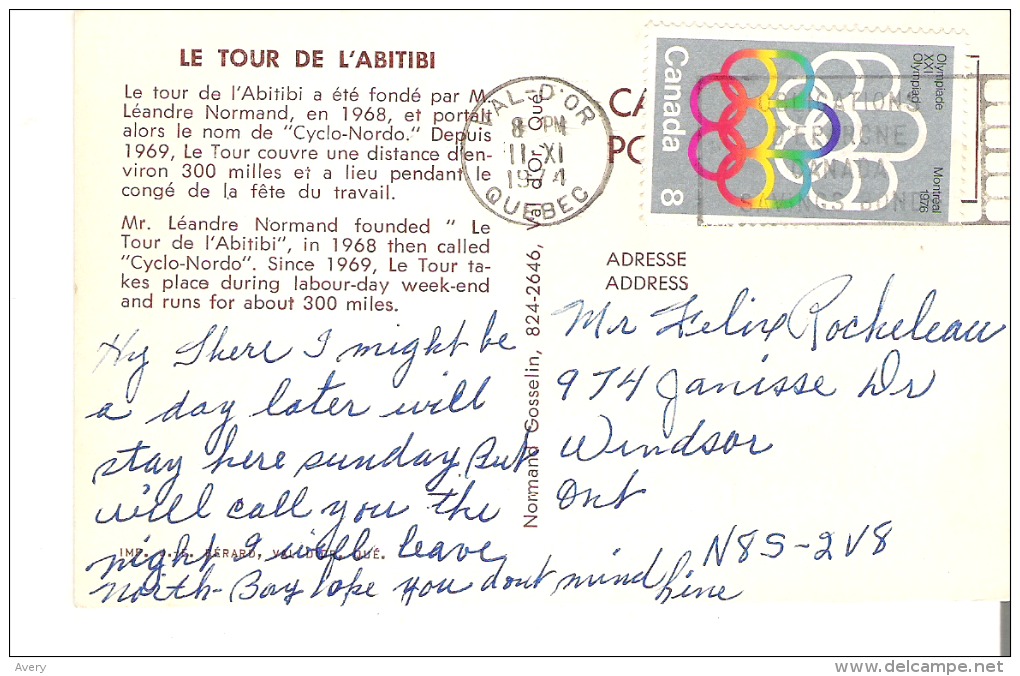 LE TOUR DE L'ABITIBI
Le tour de l'Abitibi a été fondé par M.
Léandre Normand, en 1968, et portait
alors le nom de "Cyclo-Nordo." Depuis
1969, Le Tour couvre une distance d'en-
viron 300 milles et a lieu pendant le
congé de la fête du travail.
Mr. Léandre Normand founded " Le
Tour de l'Abitibi", in 1968 then called
"Cyclo-Nordo". Since 1969, Le Tour ta-
kes place during labour-day week-end
and runs for about 300 miles.
Hy There I might be
a day later will
stay here sunday But
will call you the
night I will leave
North-Bay hope you dont mind
IMP. BÉRARD, VAL D'OR, QUÉ.
Normand Gosselin, 824-2646, Val d'Or, Qué.
VAL-D'OR
8 PM
11 XI
1974
QUEBEC
CA
PO
Canada 8
Olympiade
XXI
Olympiad
Montréal
1976
OBLIGATIONS
D'EPARGNE
CANADA
SAVINGS BONDS
ADRESSE
ADDRESS
Mr Felix Rocheleau
974 Janisse Dr
Windsor
Ont
N8S-2V8
Avery
www.delcampe.net